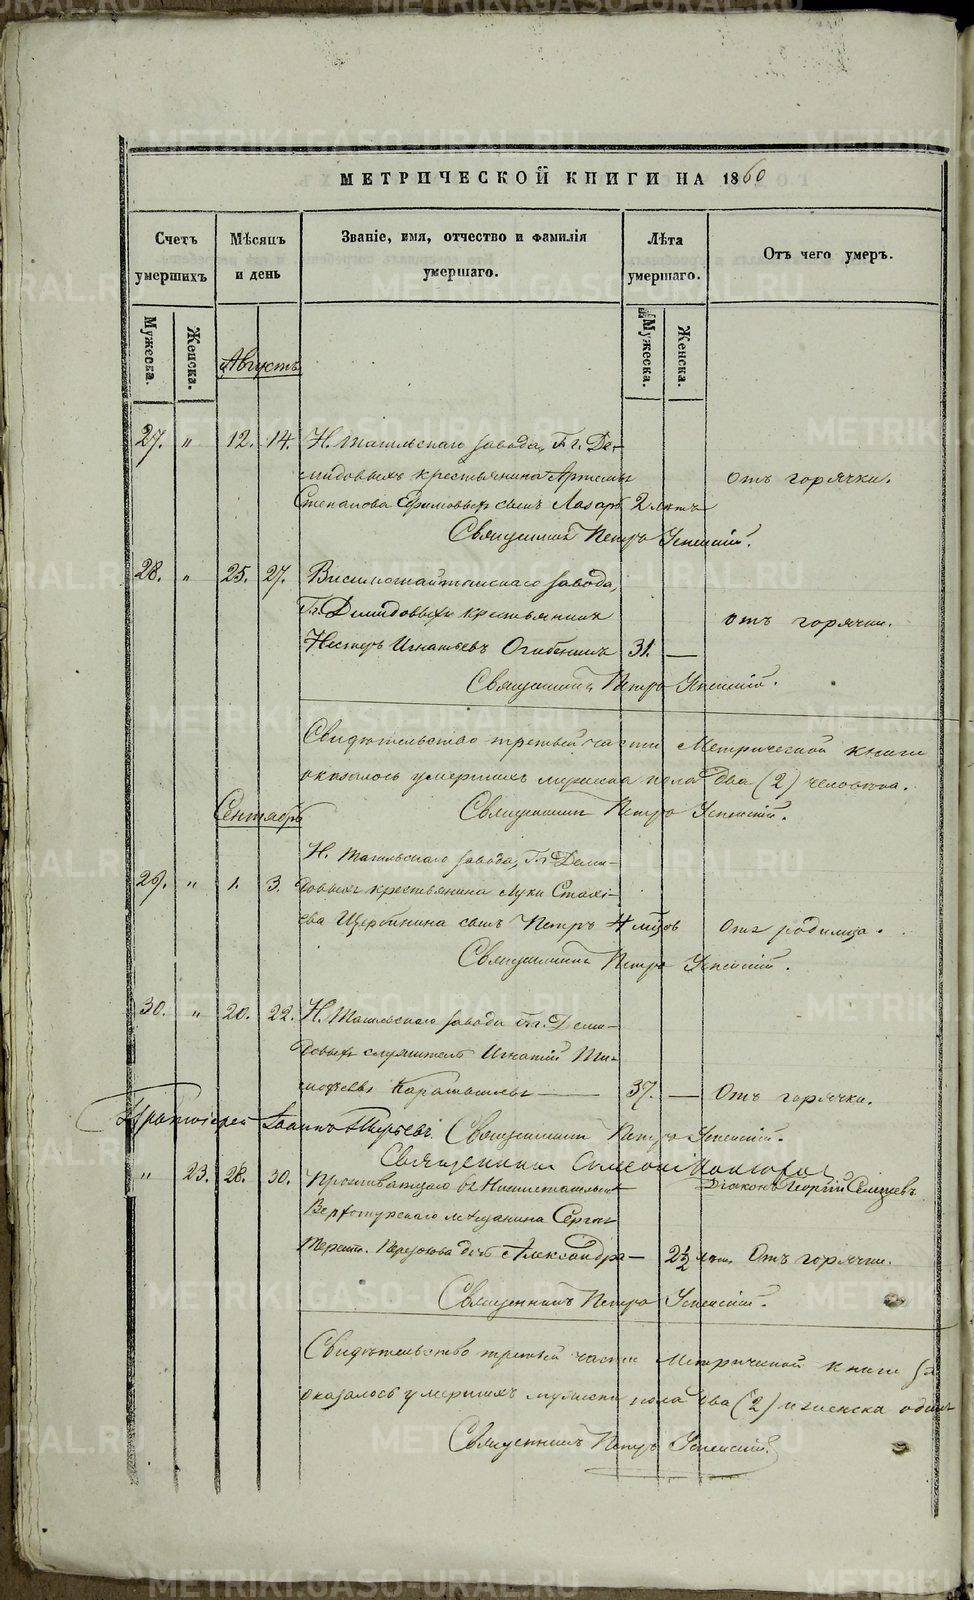 МЕТРИЧЕСКОЙ КНИГИ НА 1860
Счетъ умершихъ
Мѣсяцъ и день
Званіе, имя, отчество и фамилія умершаго.
Лѣта умершаго.
Отъ чего умеръ.
Мужеска.
Женска.
Мужеска.
Женска.
Августъ
27. " 12. 14. Н. Тагильскаго завода, Гг. Де-
мидовыхъ крестьянина Артемы отъ горячки.
Степанова Ефимовыхъ сынъ Лазарь 2 лѣтъ
Священникъ Петръ Успенскій.
28. " 25. 27. Висимошайтанскаго завода,
Гг. Демидовыхъ крестьянинъ отъ горячки.
Нестеръ Игнатьевъ Огибенинъ 31. —
Священникъ Петръ Успенскій.
Свидѣтельство третьей части Метрической книги
оказалось умершихъ мужеска пола два (2) человѣка.
Сентябрь
Священникъ Петръ Успенскій.
Н. Тагильскаго завода, Гг. Деми-
29. " 1. 3. довыхъ крестьянина Луки
ева Щербинина сынъ Петръ 4 мѣсов Отъ родимца.
Священникъ Петръ Успенскій.
30. " 20. 22. Н. Тагильскаго завода Гг. Деми-
довыхъ служитель Игнатій Ти-
мофеевъ — 37. — Отъ горячки.
Протоіерей Іоаннъ Священникъ Петръ Успенскій.
Священникъ
" 23. 28. 30. Проживающаго въ Нижнетагильскѣ Діаконъ Георгій Селищевъ
Верхотурскаго мѣщанина Сергѣя
дочь Александра — 2½ лѣт. Отъ горячки.
Священникъ Петръ Успенскій.
Свидѣтельство третьей части Метрической книги
оказалось умершихъ мужеска пола два (2) и женска одна
Священникъ Петръ Успенскій.
METRIKI.GASO-URAL.RU